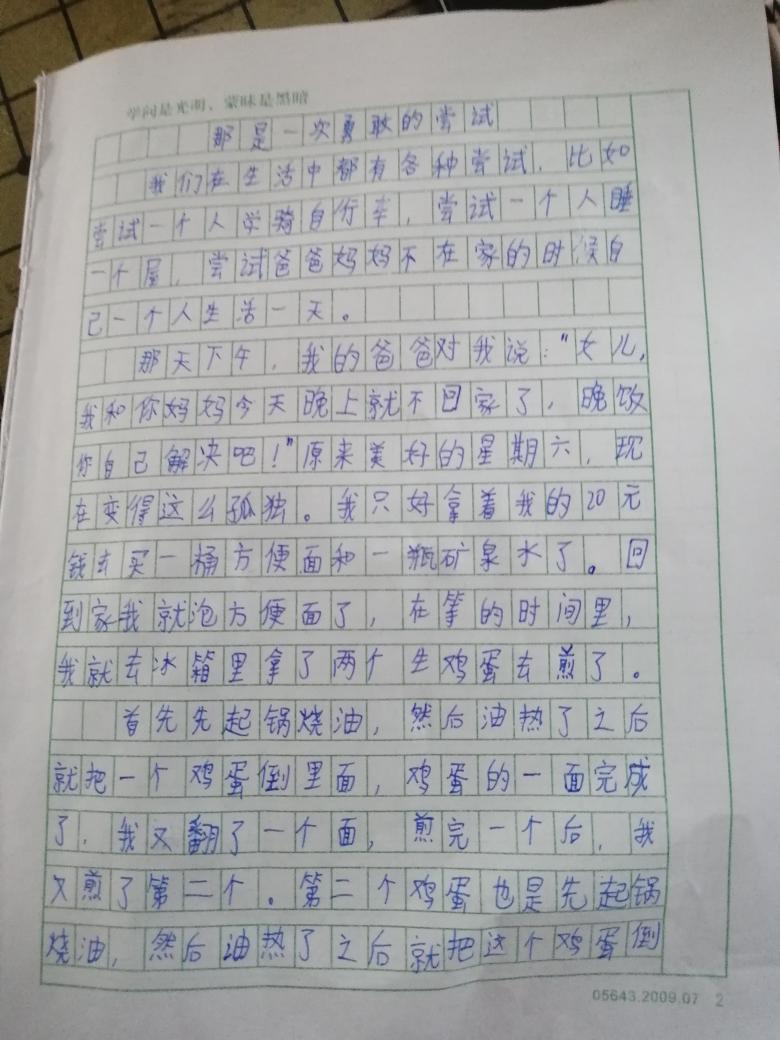 学问是光明、蒙昧是黑暗
那是一次勇敢的尝试
我们在生活中都有各种尝试，比如
尝试一个人学骑自行车，尝试一个人睡
一个屋，尝试爸爸妈妈不在家的时候自
己一个人生活一天。
那天下午，我的爸爸对我说：“女儿，
我和你妈妈今天晚上就不回家了，晚饭
你自己解决吧！”原来美好的星期六，现
在变得这么孤独。我只好拿着我的20元
钱去买一桶方便面和一瓶矿泉水了。回
到家我就泡方便面了，在等的时间里，
我就去冰箱里拿了两个生鸡蛋去煎了。
首先先起锅烧油，然后油热了之后
就把一个鸡蛋倒里面，鸡蛋的一面完成
了，我又翻了一个面，煎完一个后，我
又煎了第二个。第二个鸡蛋也是先起锅
烧油，然后油热了之后就把这个鸡蛋倒
05643.2009.07 2